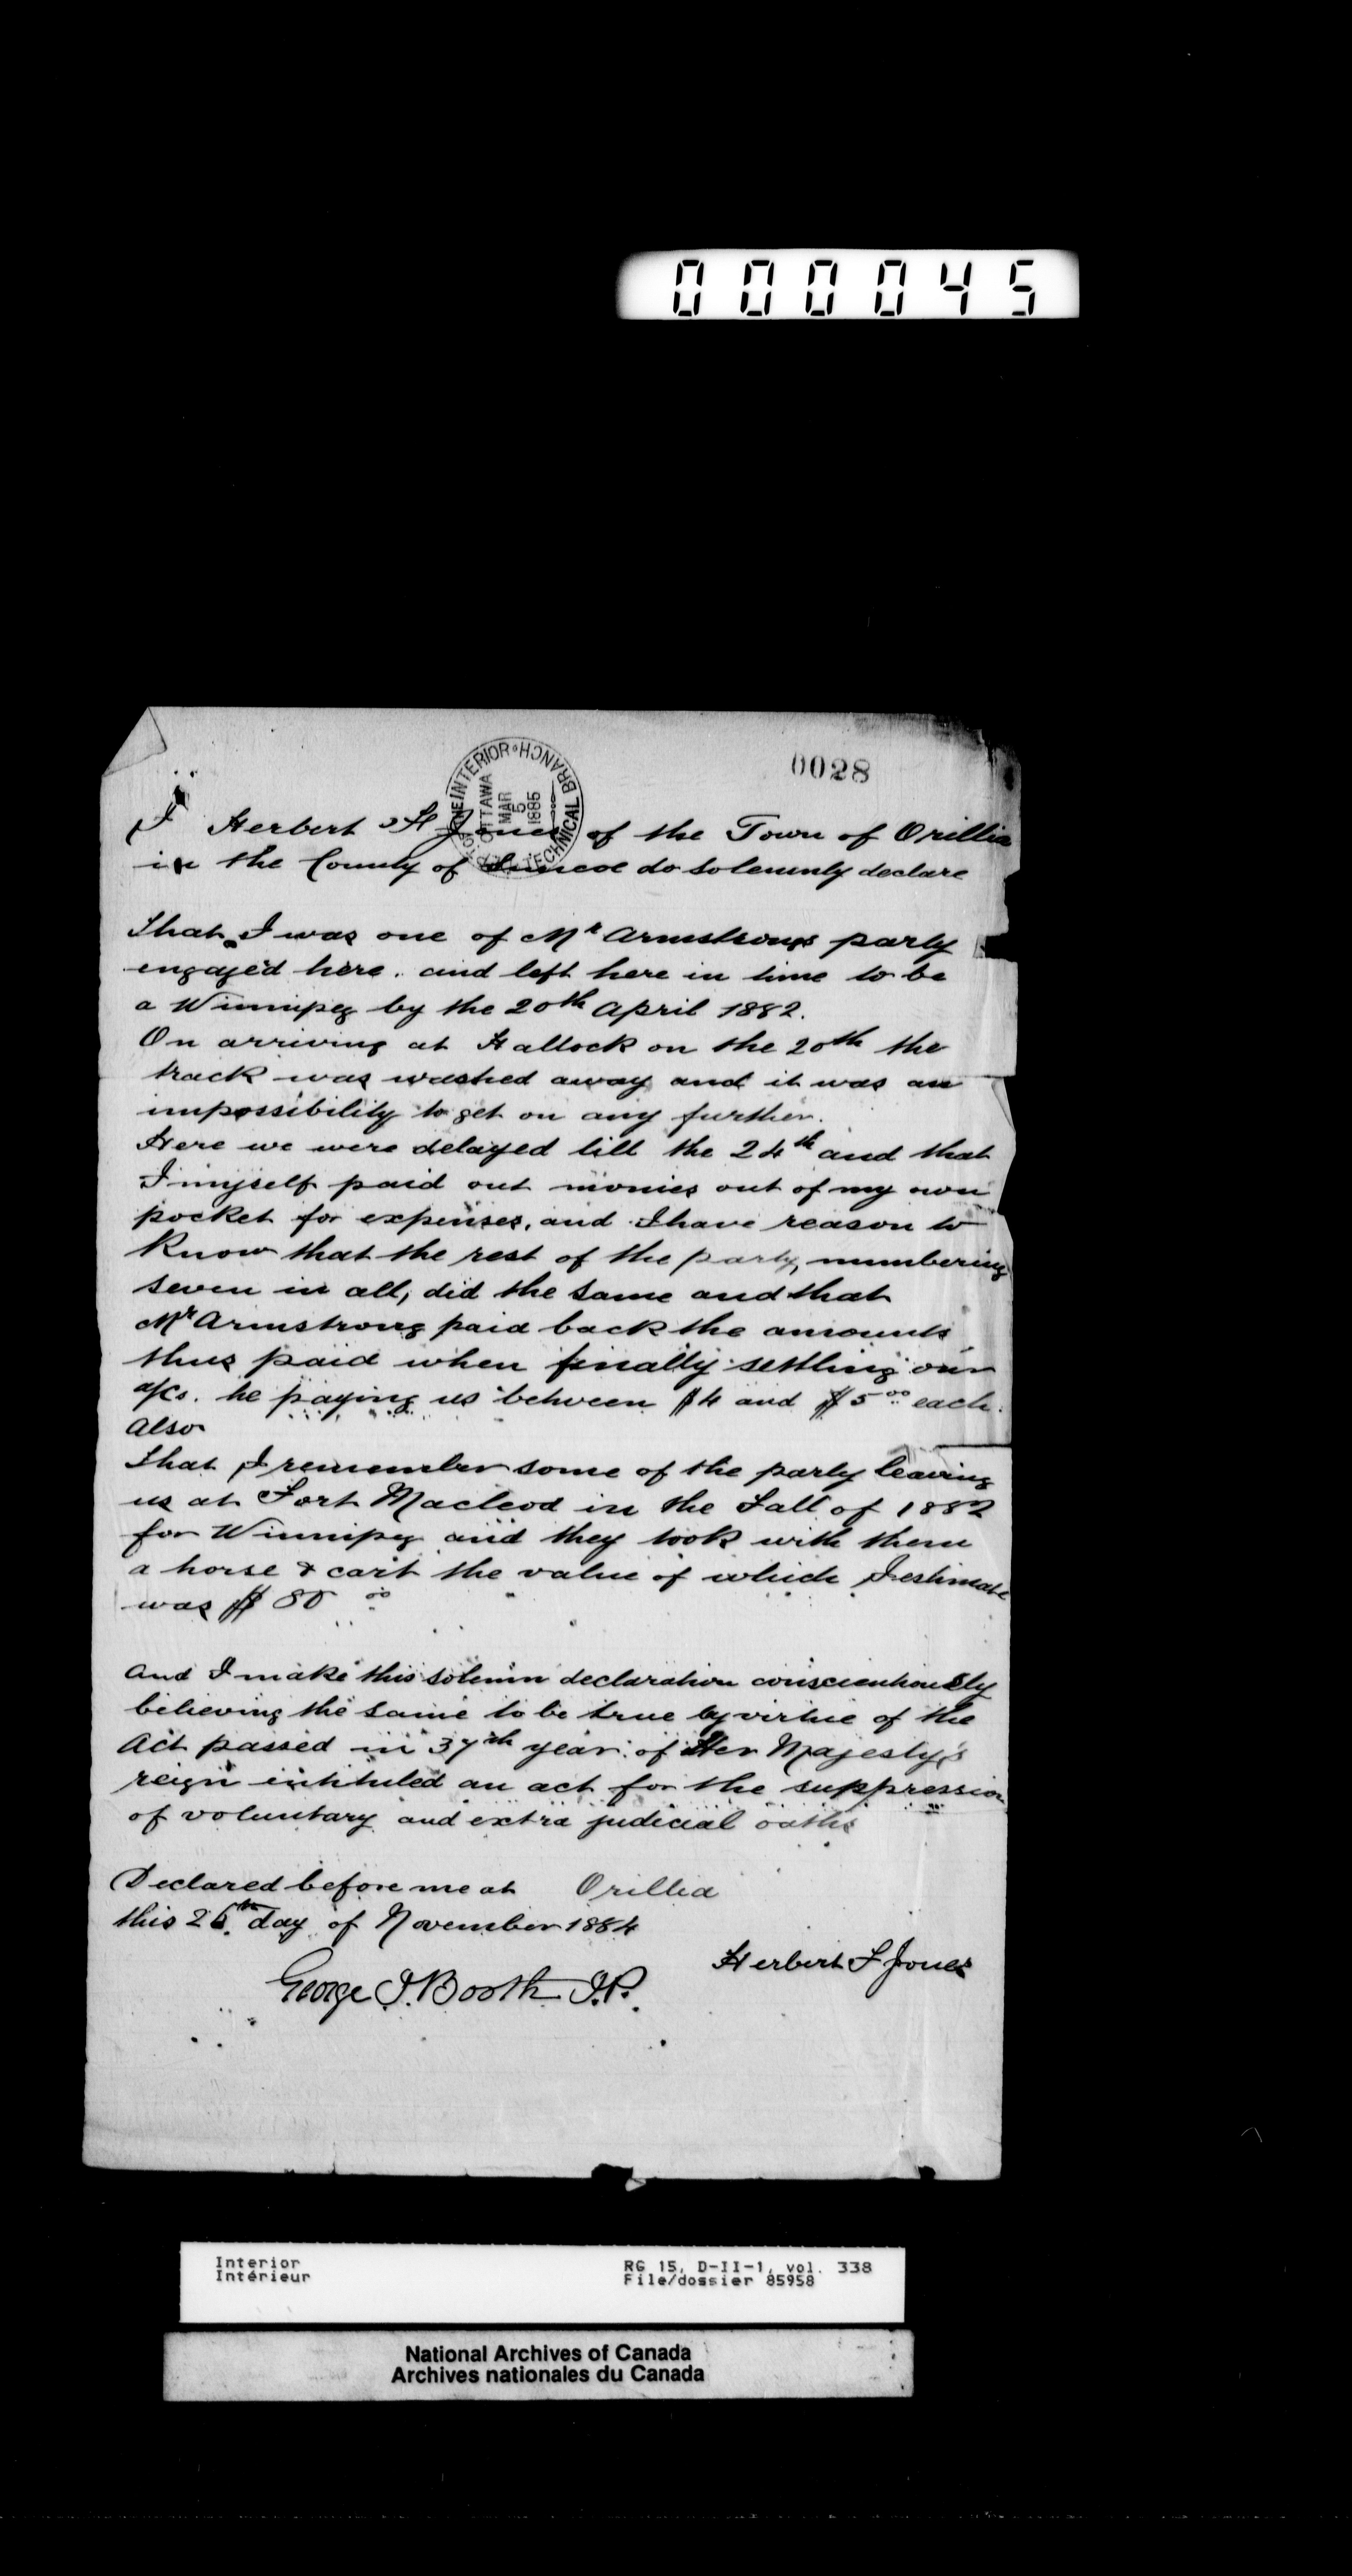 000045
0028
INTERIOR
TECHNICAL BRANCH
OTTAWA
MAR
5
1885
I Herbert H Jones of the Town of Orillia
in the County of Simcoe do solemnly declare
that I was one of Mr Armstrongs party
engaged here. and left here in time to be
a Winnipeg by the 20th April 1882.
On arriving at Hallock on the 20th the
track was washed away and it was an
impossibility to get on any further.
Here we were delayed till the 24th and that
I myself paid out monies out of my own
pocket for expenses, and I have reason to
know that the rest of the party, numbering
seven in all, did the same and that
Mr Armstrong paid back the amounts
thus paid when finally settling our
a/cs. he paying us between $4 and $5 00 each.
Also
that I remember some of the party leaving
us at Fort Macleod in the Fall of 1882
for Winnipeg and they took with them
a horse & cart the value of which I estimate
was $ 80 00
And I make this solemn declaration conscientiously
believing the same to be true by virtue of the
Act passed in 37th year of Her Majesty's
reign intituled an act for the suppression
of voluntary and extra judicial oaths
Declared before me at Orillia
this 26th day of November 1884
Herbert F Jones
George J. Booth J.P.
Interior
Intérieur
RG 15, D-II-1, vol. 338
File/dossier 85958
National Archives of Canada
Archives nationales du Canada